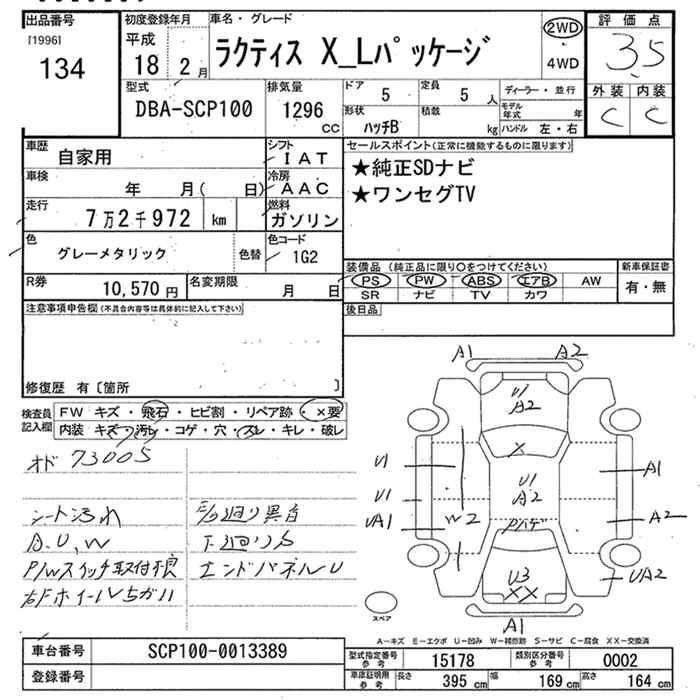 出品番号
[1996]
134
初度登録年月
平成
18 2 月
車名・グレード
ラクティス X_Lパッケージ
2WD
4WD
評価点
3.5
外装 内装
C C
型式
DBA-SCP100
排気量
1296
CC
ドア 5
定員 5 人
形状
ハッチB
積載 kg
ディーラー・並行
モデル年式 年
ハンドル 左・右
車歴
自家用
シフト
IAT
車検
年 月( 日)
冷房
AAC
走行
7万2千972 km
燃料
ガソリン
色
グレーメタリック
色替
色コード
1G2
R券
10,570 円
名変期限
月 日
セールスポイント(正常に機能するものに限ります)
★純正SDナビ
★ワンセグTV
装備品 (純正品に限り○をつけてください)
PS PW ABS エアB AW
SR ナビ TV カワ
新車保証書
有・無
後日品
注意事項申告欄(不具合内容等は具体的に記入して下さい)
修復歴 有 〔箇所 〕
検査員記入欄
FW キズ・飛石・ヒビ割・リペア跡・×要
内装 キズ・汚レ・コゲ・穴・スレ・キレ・破レ
オド 73005
シート汚れ
A.U,W
P/Wスイッチ取付不良
右FホイールVちがい
下廻りS
エンドパネルU
A1 A2
U
A2
X
U1
U1
A2
A1
U1
UA1
W2
A2
U3
XX
UA2
A1
スペア
A-キズ E-エクボ U-凹み W-補修跡 S-サビ C-腐食 XX-交換済
車台番号
SCP100-0013389
登録番号
型式指定番号
参考
15178
類別区分番号
参考
0002
車庫証明用
参考
長さ 395 cm
幅 169 cm
高さ 164 cm